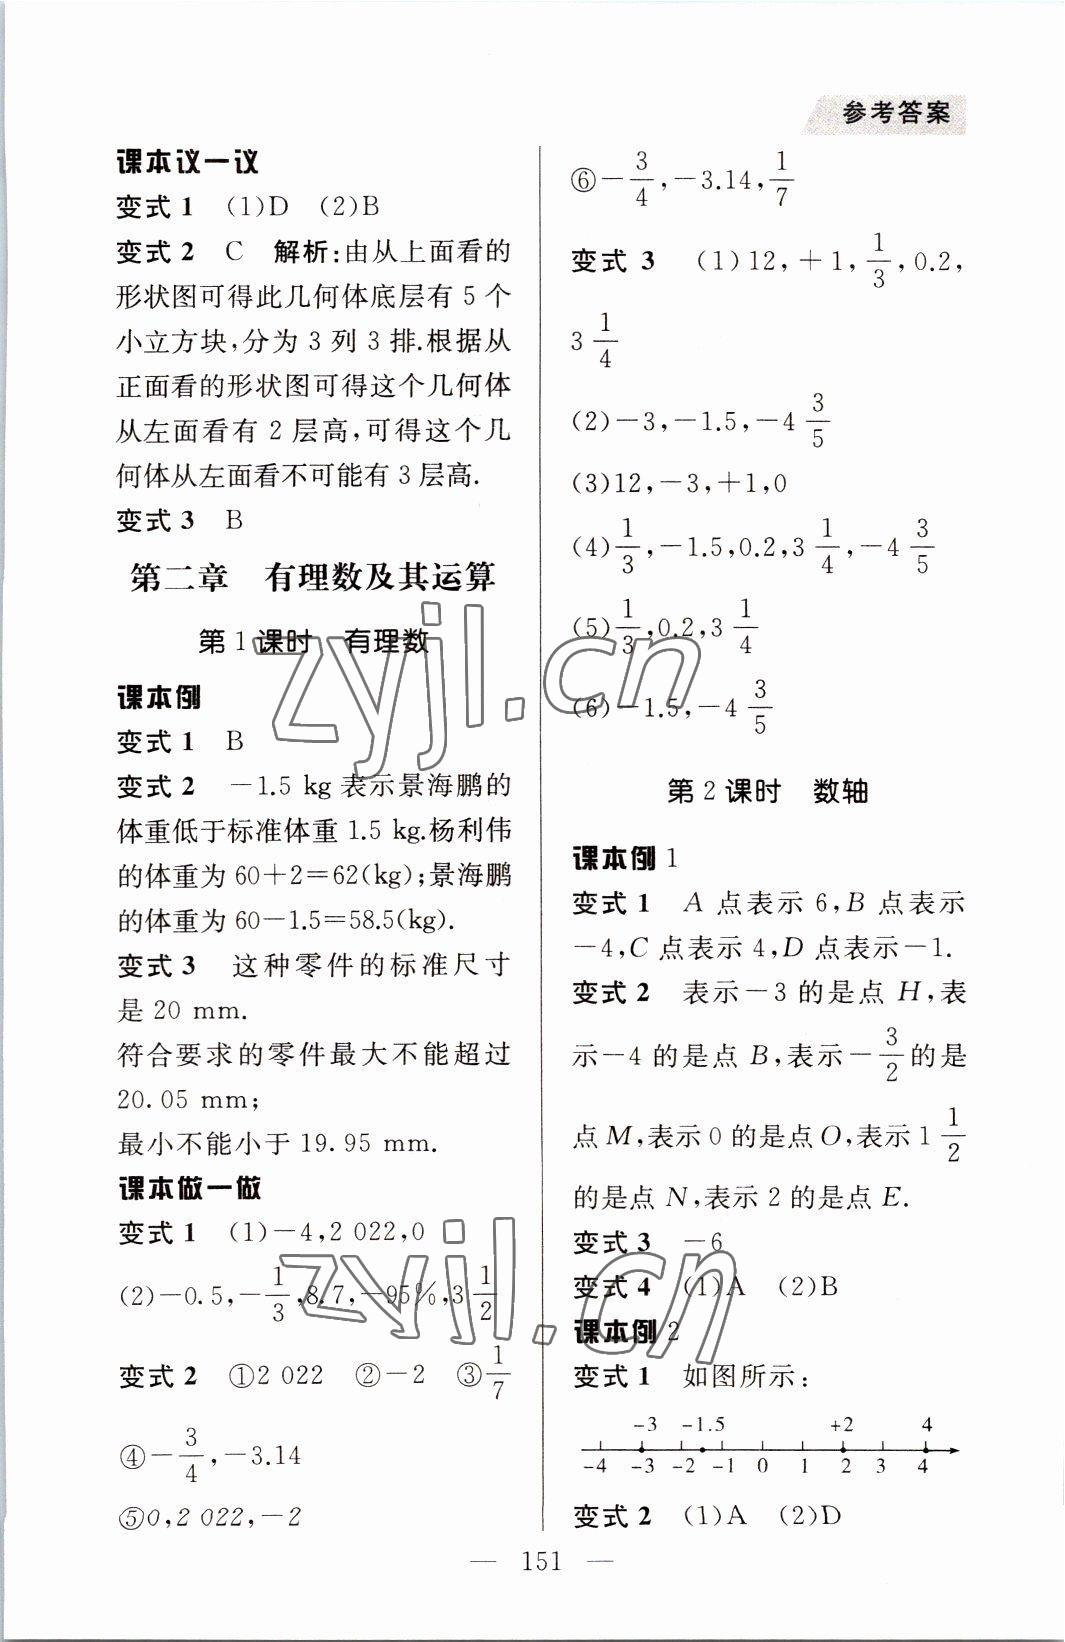 参考答案
课本议一议
变式 1 (1)D (2)B
变式 2 C 解析:由从上面看的
形状图可得此几何体底层有 5 个
小立方块,分为 3 列 3 排.根据从
正面看的形状图可得这个几何体
从左面看有 2 层高,可得这个几
何体从左面看不可能有 3 层高.
变式 3 B
第二章 有理数及其运算
第 1 课时 有理数
课本例
变式 1 B
变式 2 -1.5 kg 表示景海鹏的
体重低于标准体重 1.5 kg.杨利伟
的体重为 60+2=62(kg);景海鹏
的体重为 60-1.5=58.5(kg).
变式 3 这种零件的标准尺寸
是 20 mm.
符合要求的零件最大不能超过
20.05 mm;
最小不能小于 19.95 mm.
课本做一做
变式 1 (1)-4,2 022,0
(2)-0.5,-1/3,8.7,-95%,3 1/2
变式 2 ①2 022 ②-2 ③1/7
④-3/4,-3.14
⑤0,2 022,-2
⑥-3/4,-3.14,1/7
变式 3 (1)12,+1,1/3,0.2,
3 1/4
(2)-3,-1.5,-4 3/5
(3)12,-3,+1,0
(4)1/3,-1.5,0.2,3 1/4,-4 3/5
(5)1/3,0.2,3 1/4
(6)-1.5,-4 3/5
第 2 课时 数轴
课本例 1
变式 1 A 点表示 6,B 点表示
-4,C 点表示 4,D 点表示-1.
变式 2 表示-3 的是点 H,表
示-4 的是点 B,表示-3/2的是
点 M,表示 0 的是点 O,表示 1 1/2
的是点 N,表示 2 的是点 E.
变式 3 -6
变式 4 (1)A (2)B
课本例 2
变式 1 如图所示:
-3 -1.5 +2 4
-4 -3 -2 -1 0 1 2 3 4
变式 2 (1)A (2)D
— 151 —
zyjl.cn
zyjl.cn